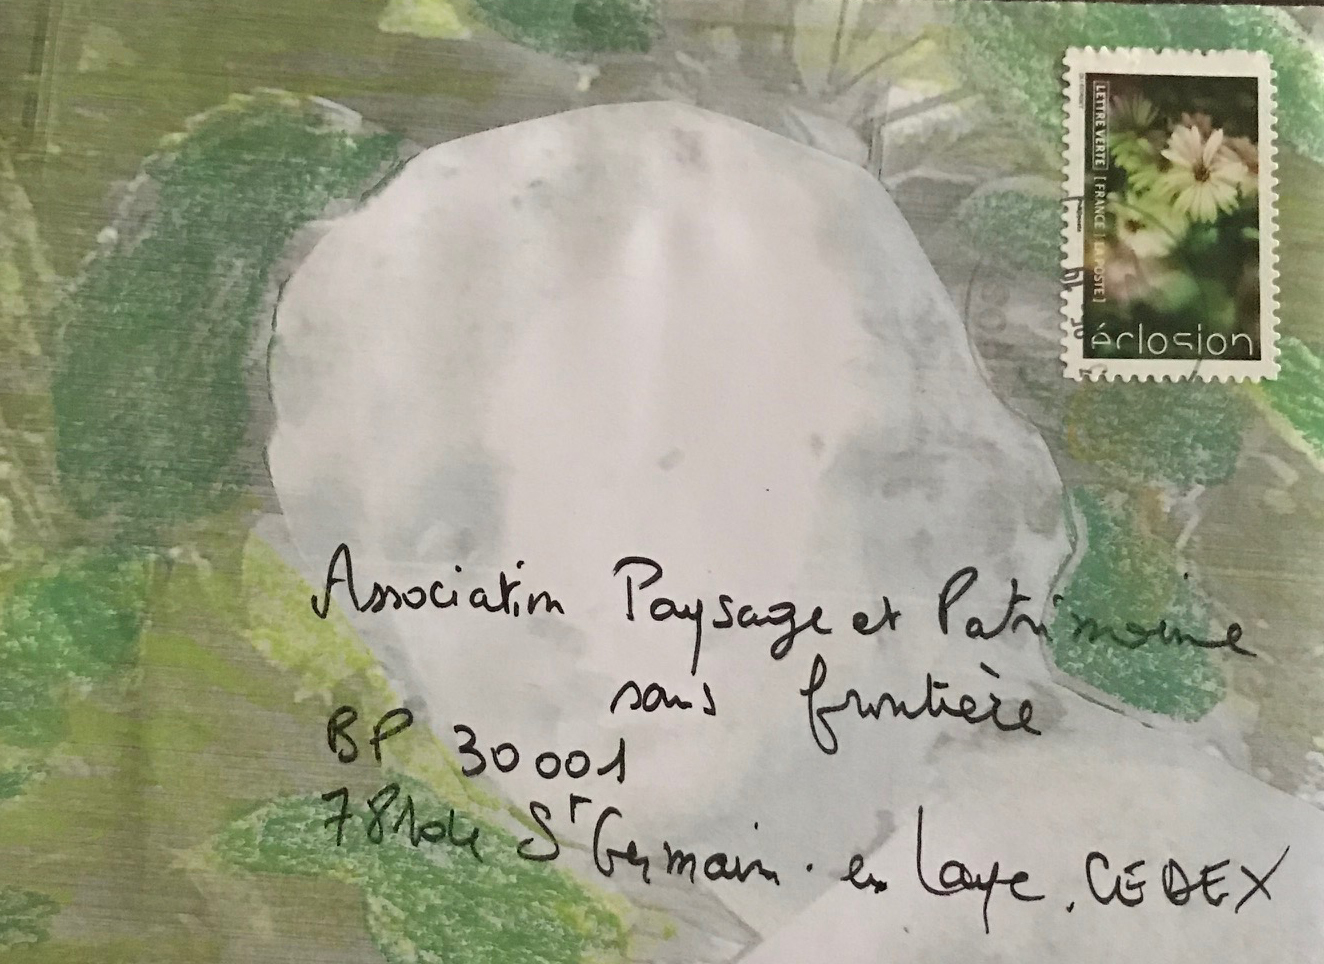 LETTRE VERTE | FRANCE | LA POSTE
éclosion
Association Paysage et Patrimoine
sans frontière
BP 30001
78104 St Germain-en Laye. CEDEX